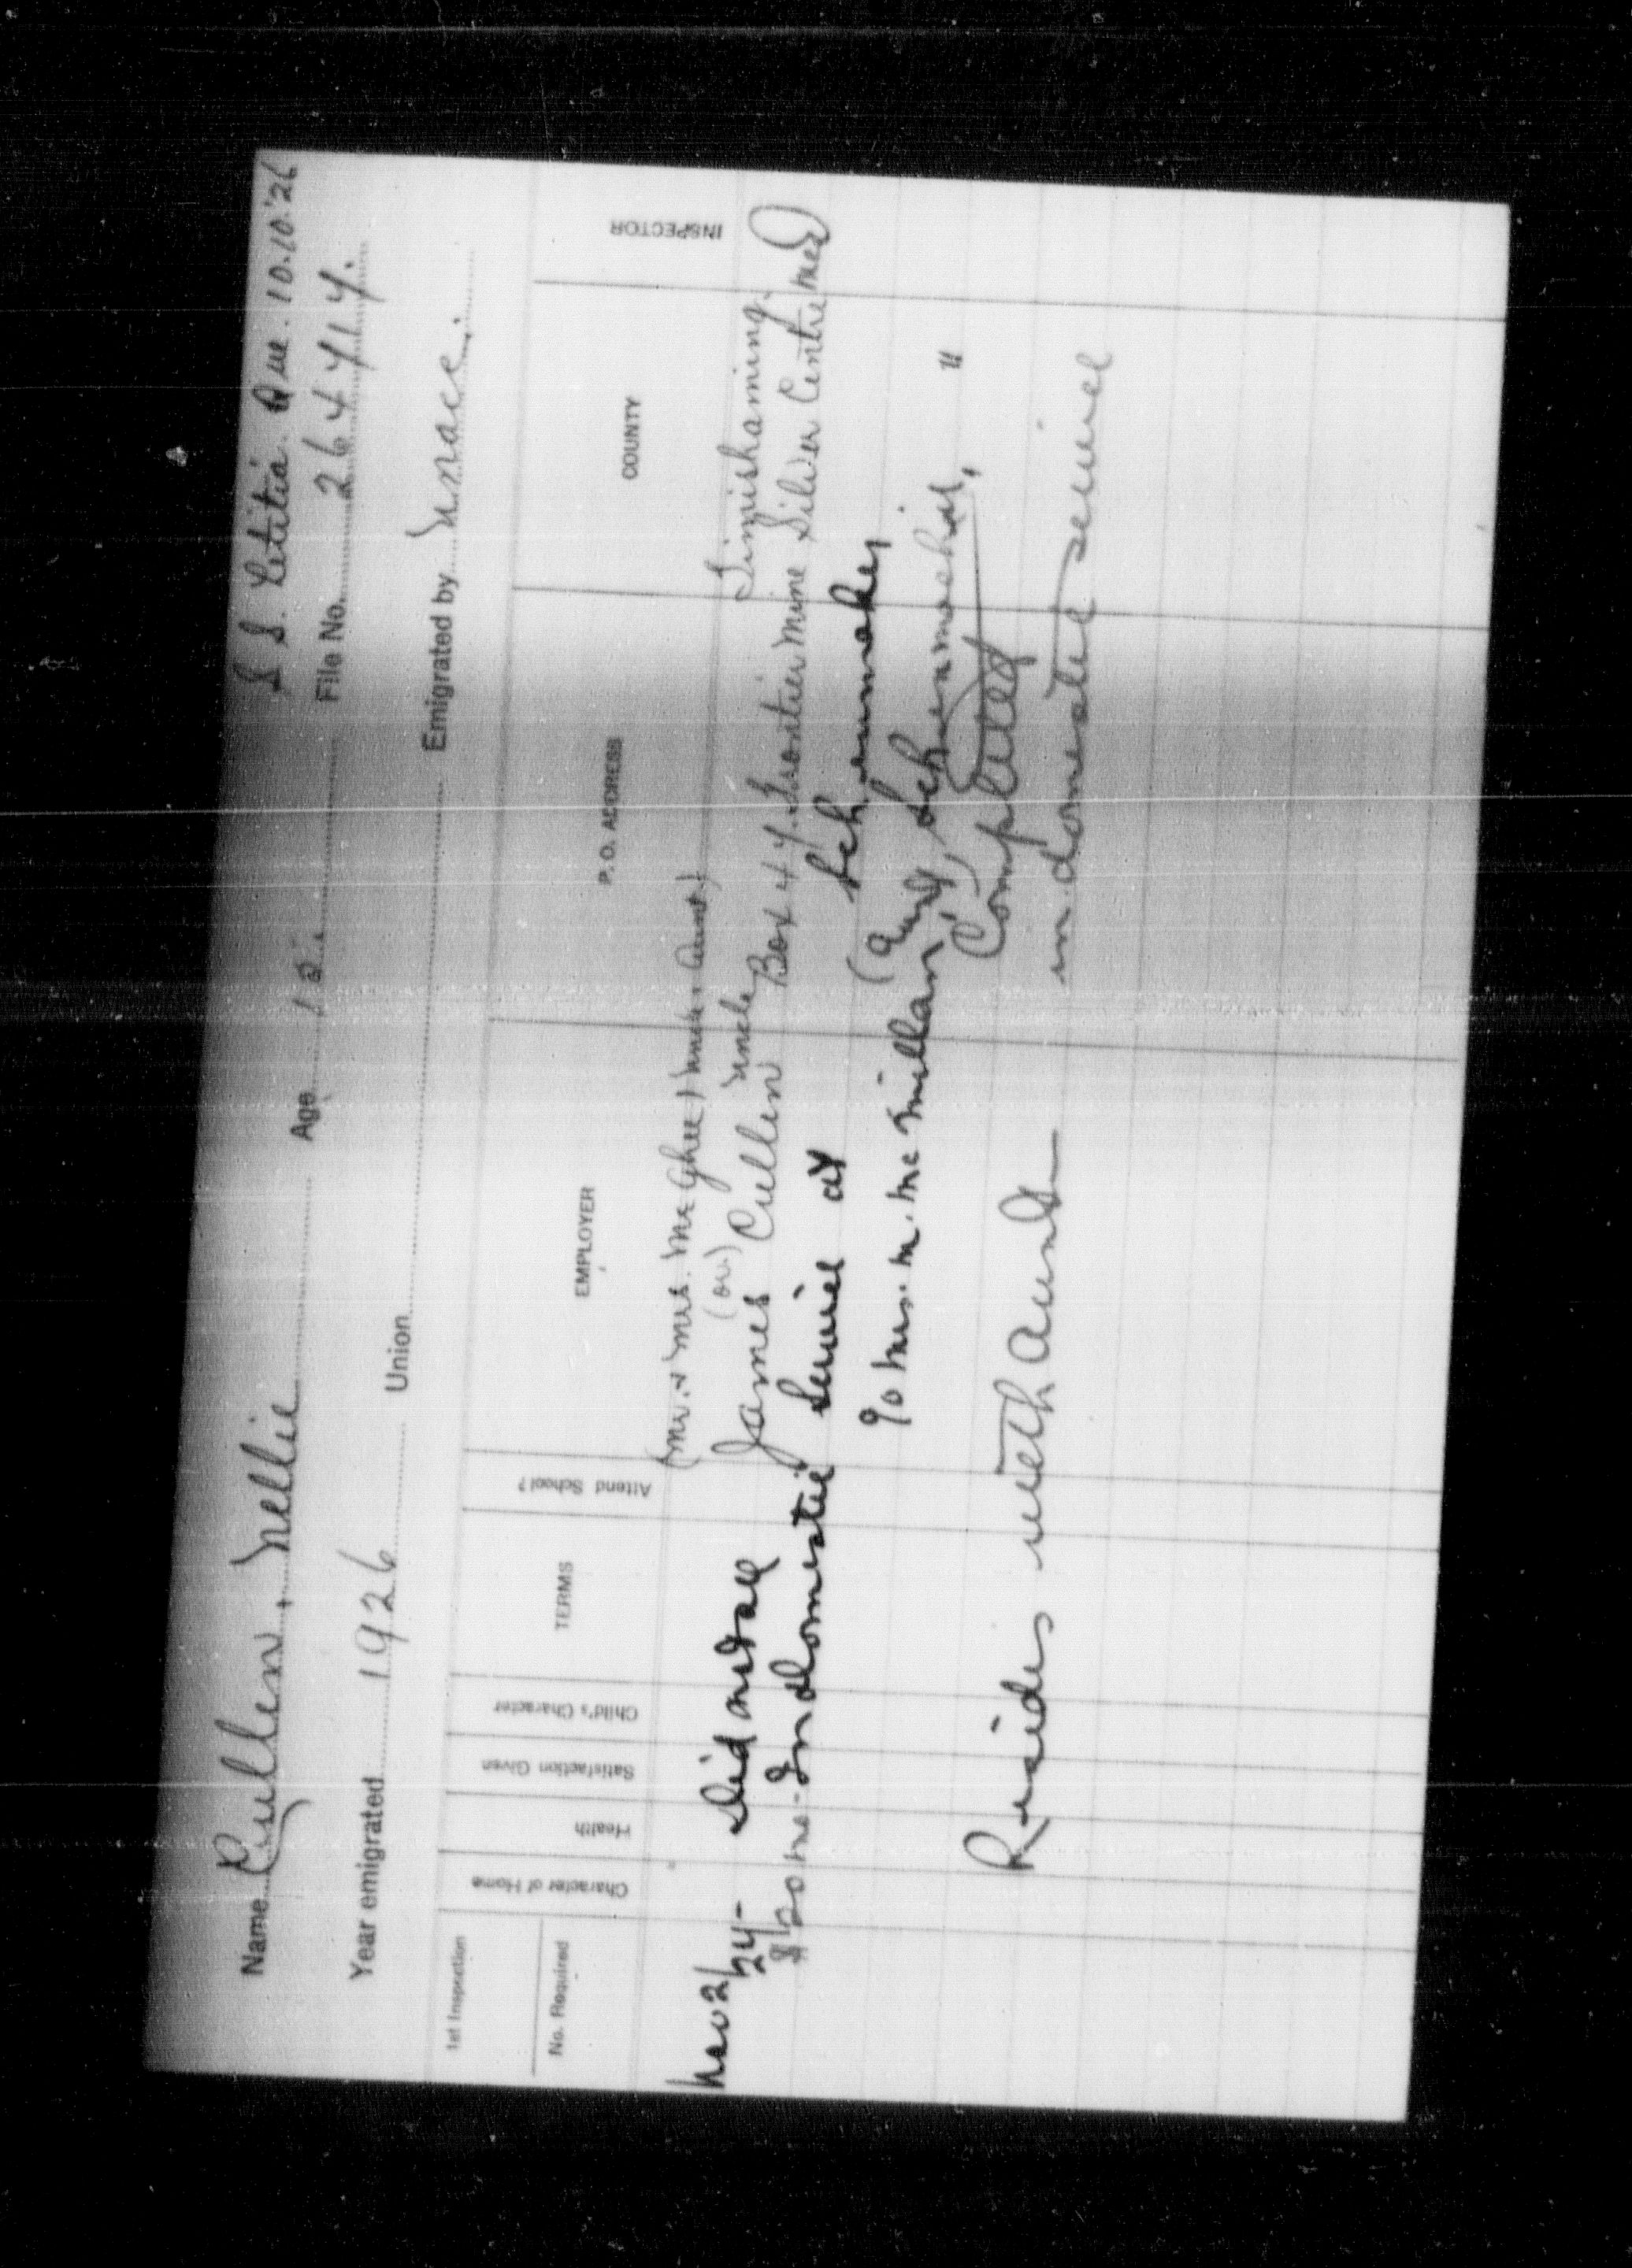 Name Cullen, Nellie Age 15. S S. Letitia. Que. 10.10.'26
Year emigrated 1926 Union File No. 264414.
Emigrated by
1st Inspection
No. Required
Character of Home
Health
Satisfaction Given
Child's Character
TERMS
Attend School?
EMPLOYER
P. O. ADDRESS
COUNTY
INSPECTOR
(Mr. & Mrs. McGhee) Aunt)
(or)
Nov 2/ James Cullen Uncle Timiskaming.
24- Did not all Box 44. Frontier Mine Silver Centre
$20 me - In domestic service at
(Aunt)
c/o Mrs. M. McMillan, "
Completed
Resides with Aunt in domestic service